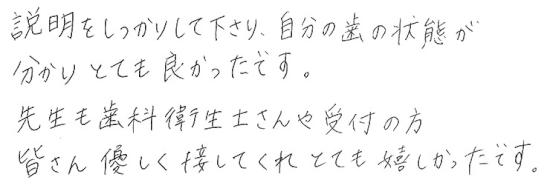 説明をしっかりして下さり、自分の歯の状態が
分かりとても良かったです。
先生も歯科衛生士さんや受付の方
皆さん優しく接してくれとても嬉しかったです。